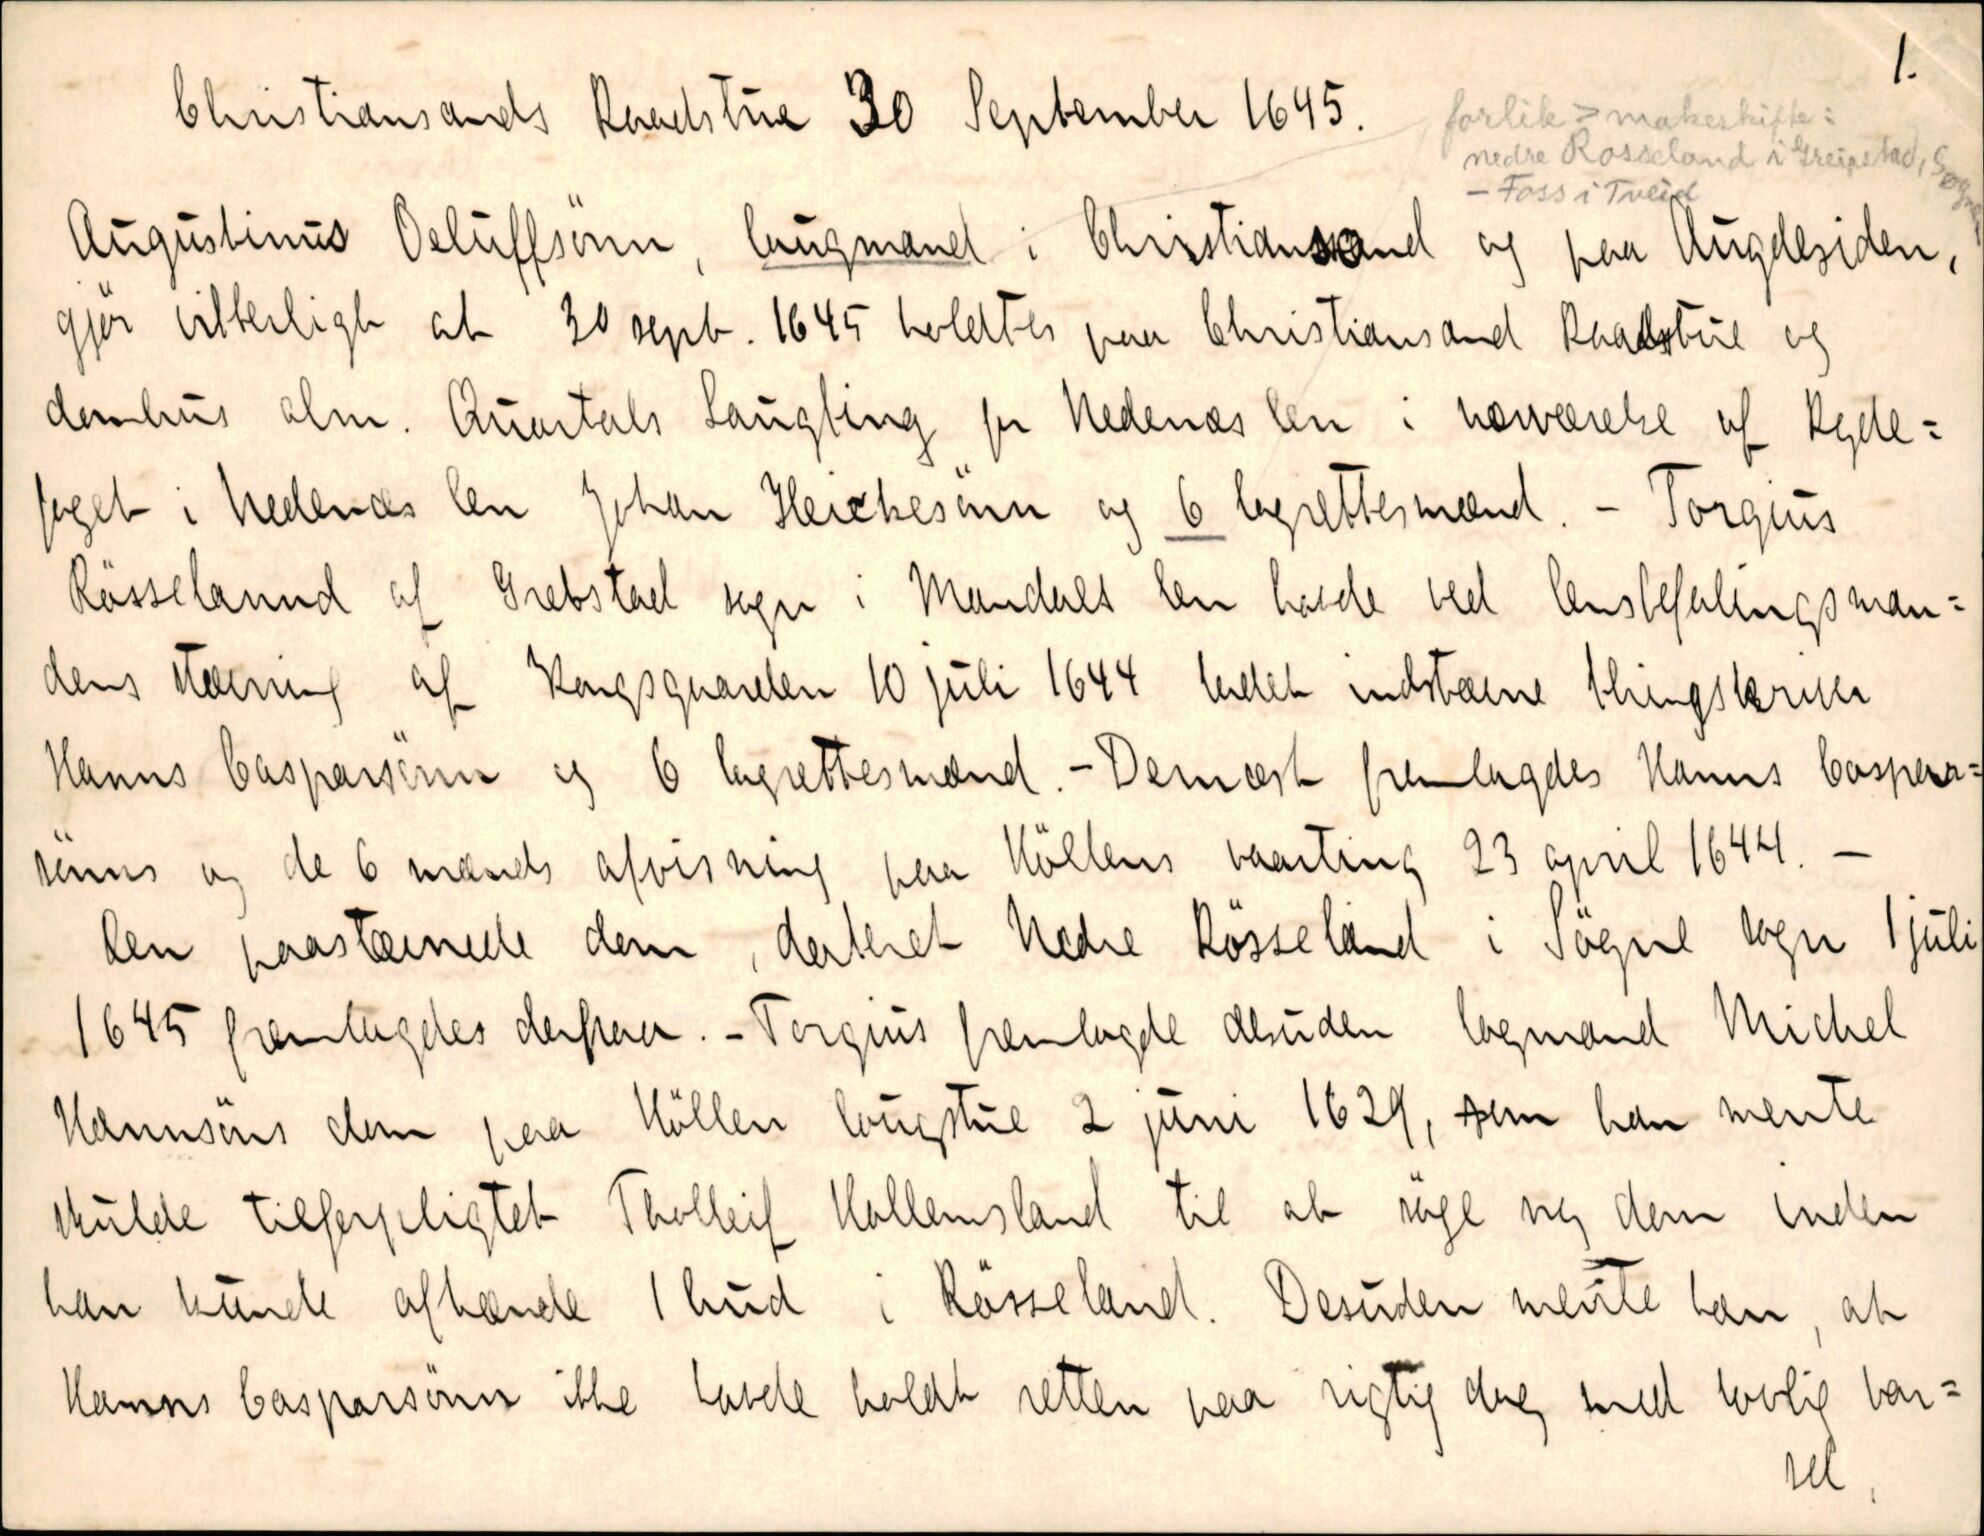 1.
Christiansands Raadstue 30 September 1645.
forlik > makeskifte:
nedre Rosseland i Greipstad, Søgne
- Foss i Tveid
Augustinus Oeluffsönn, laugmand i Christianssand og paa Augdesiden,
gjör vitterligt at 30 sept. 1645 holdtes paa Christiansand Raadstue og
domhus alm. Quartals Laugting for Nedenæs len i nærværelse af Ryde=
foget i Nedenæs len Johan Heickesönn og 6 lagrettesmænd. - Torgius
Rösselannd af Grebstad sogn i Mandals len havde ved lensbefalingsman=
dens stævning af Kongsgaarden 10 juli 1644 ladet indstævne thingskriver
Hanns Casparsönn og 6 lagrettesmænd. - Dernæst fremlagdes Hanns Caspar=
sönns og de 6 mænds afvisning paa Höllens vaarting 23 april 1644. -
Den paastævnede dom, dateret Nedre Rösseland i Sögne sogn 1 juli
1645 fremlagdes derpaa. - Torgius fremlagde desuden lagmand Michel
Hannsöns dom paa Höllen laugstue 2 juni 1629, som han mente
skulde tilforpligtet Tholleif Hallemsland til at söge sig dom inden
han kunde afhænde 1 hud i Rösseland. Desuden mente han, at
Hanns Casparsönn ikke havde holdt retten paa rigtig dag med lovlig var=
sel.